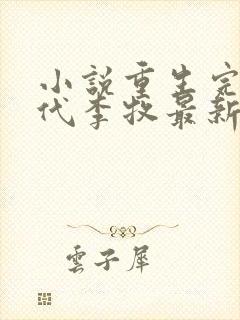 小說重生完
代李牧最新
雲子犀